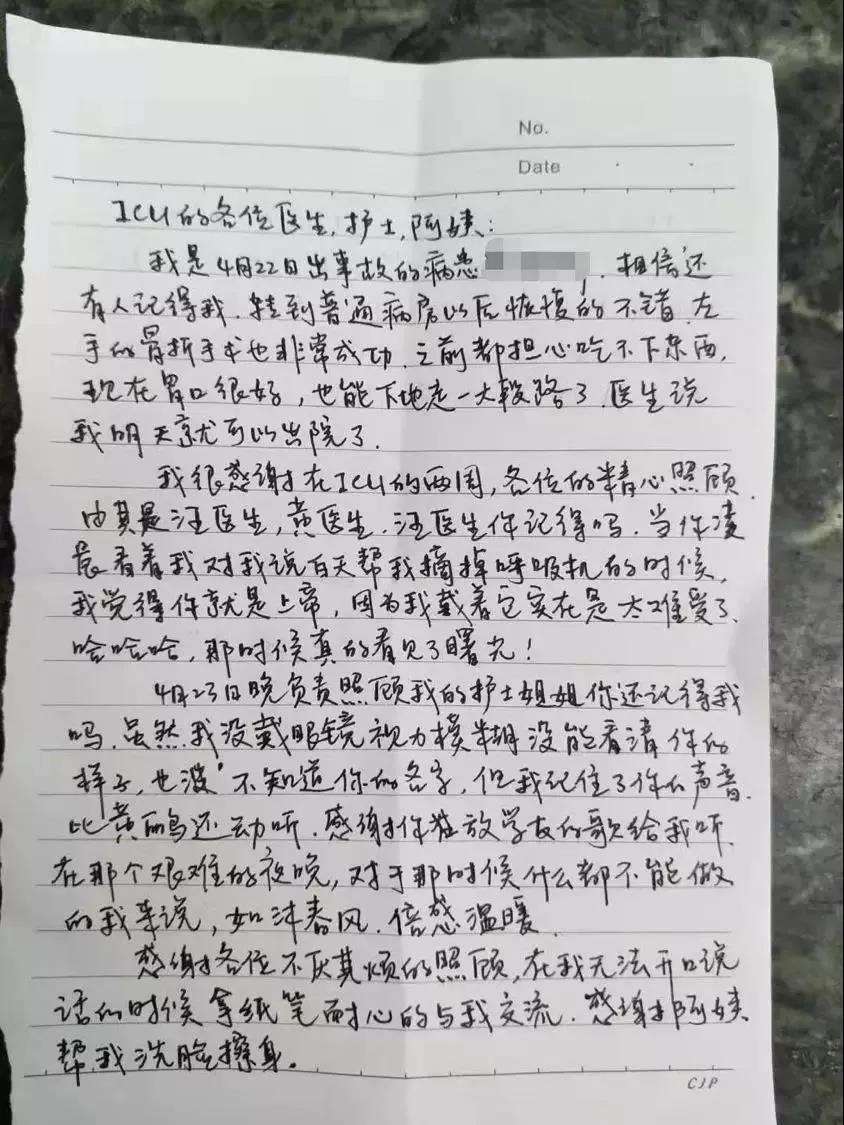 No.
Date
ICU的各位医生,护士,阿姨:
我是4月22日出事故的病患 , 相信还
有人记得我. 转到普通病房以后恢复的不错. 左
手的骨折手术也非常成功. 之前都担心吃不下东西,
现在胃口很好, 也能下地走一大段路了. 医生说
我明天就可以出院了.
我很感谢在ICU的两周, 各位的精心照顾.
由其是汪医生, 黄医生. 汪医生你记得吗. 当你凌
晨看着我对我说白天帮我摘掉呼吸机的时候,
我觉得你就是上帝, 因为我戴着它实在是太难受了.
哈哈哈, 那时候真的看见了曙光!
4月23日晚负责照顾我的护士姐姐你还记得我
吗. 虽然我没戴眼镜视力模糊没能看清你的
样子, 也 不知道你的名字, 但我记住了你的声音.
比黄鹂还动听. 感谢你 放学友的歌给我听.
在那个艰难的夜晚, 对于那时候什么都不能做
的我来说, 如沐春风. 倍感温暖.
感谢各位不厌其烦的照顾, 在我无法开口说
话的时候拿纸笔耐心的与我交流. 感谢阿姨
帮我洗脸擦身。
CJP